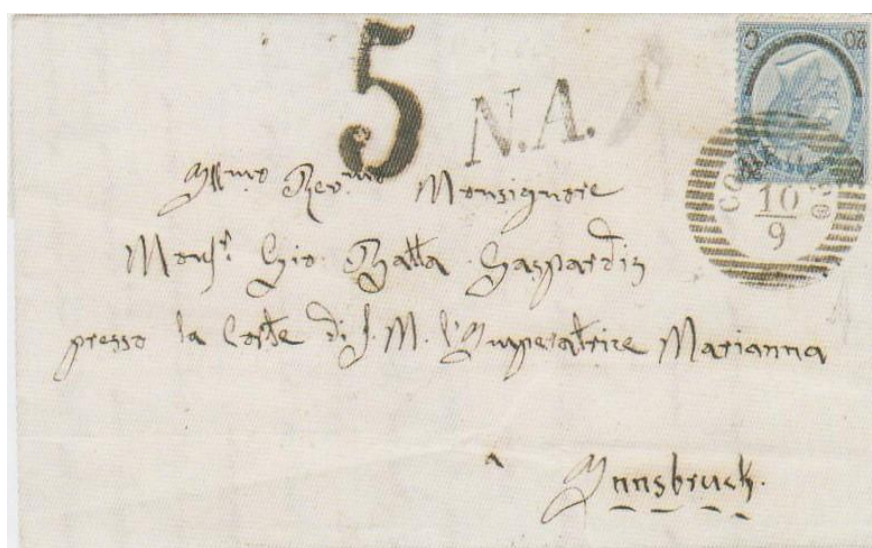 5 N.A.
20 C
10
9
Illmo Revmo Monsignore
Monsr. Gio. Batta Gaspardis
presso la Corte di S. M. l'Imperatrice Marianna
a Innsbruck.